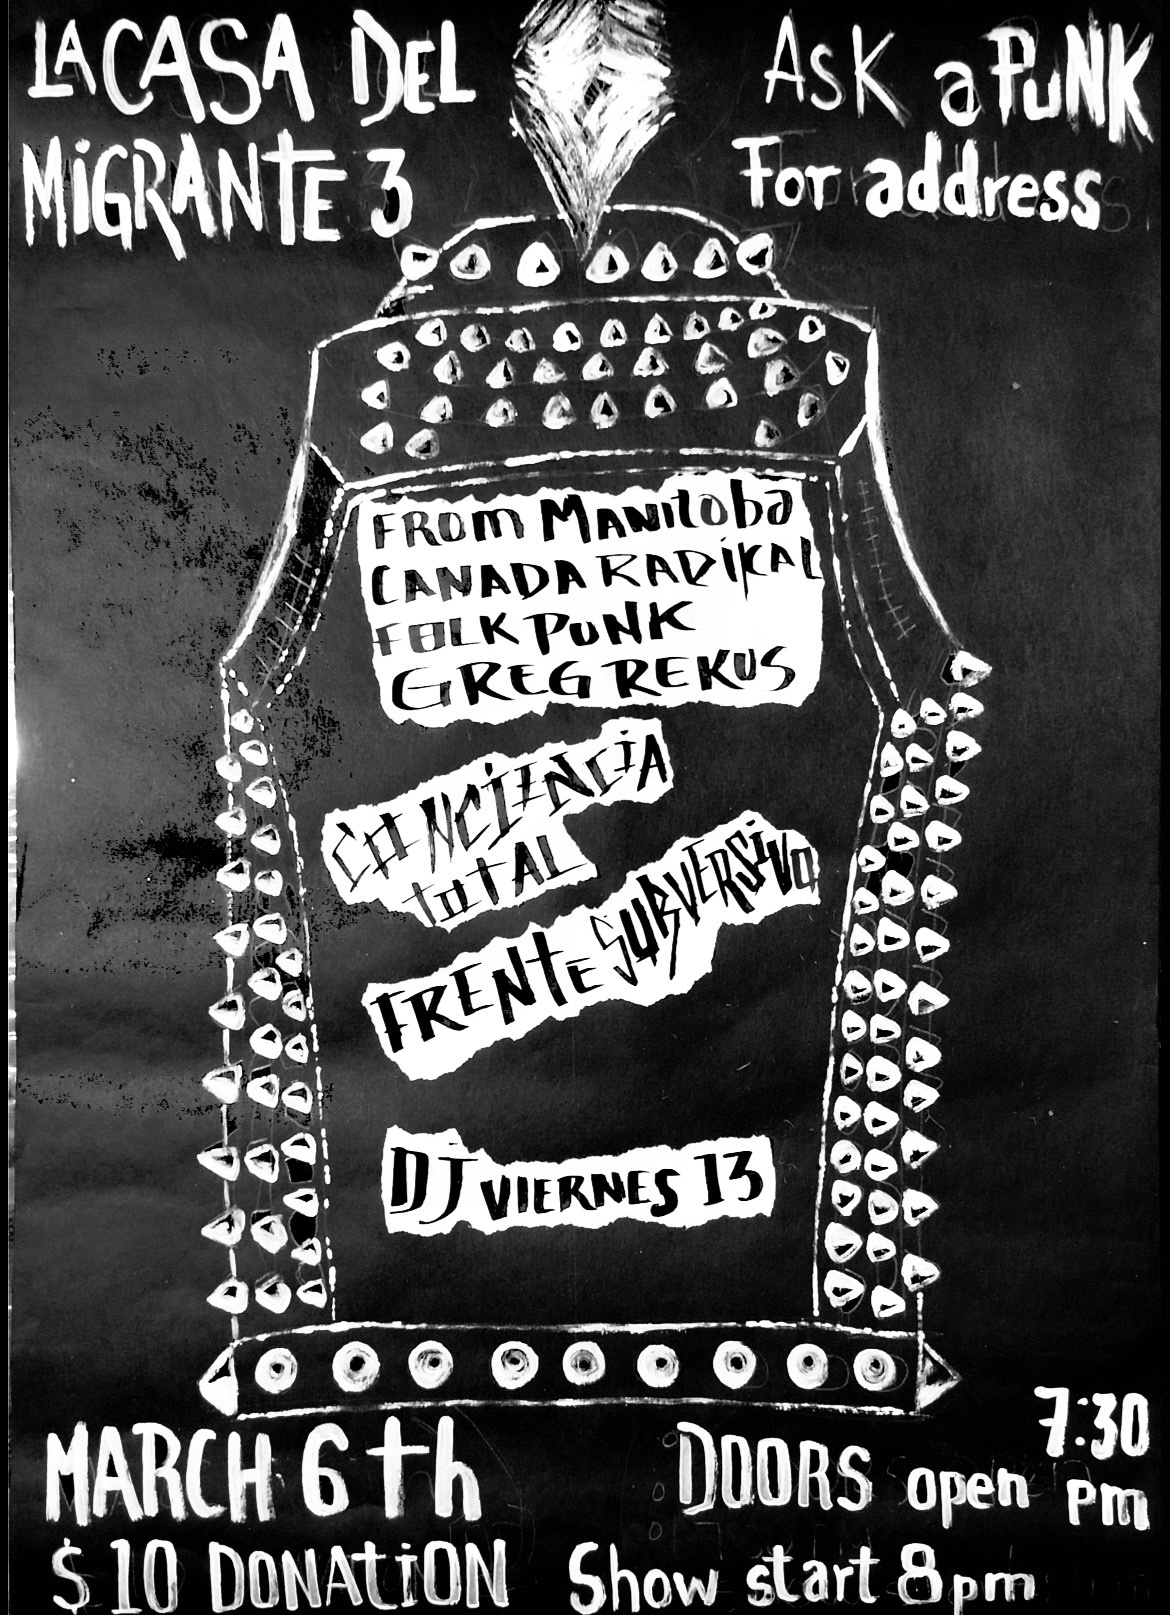 LA CASA DEL
MiGRANTE 3
ASK a PuNK
For address
FROM MANitoba
CANADA RADIKAL
FOLK PUNK
GREG REKUS
CONCiENCiA
totAL
FRENtE SUBVERSiVO
DJ VIERNES 13
MARCH 6th
$10 DONAtiON
DOORS open 7:30 pm
Show start 8pm